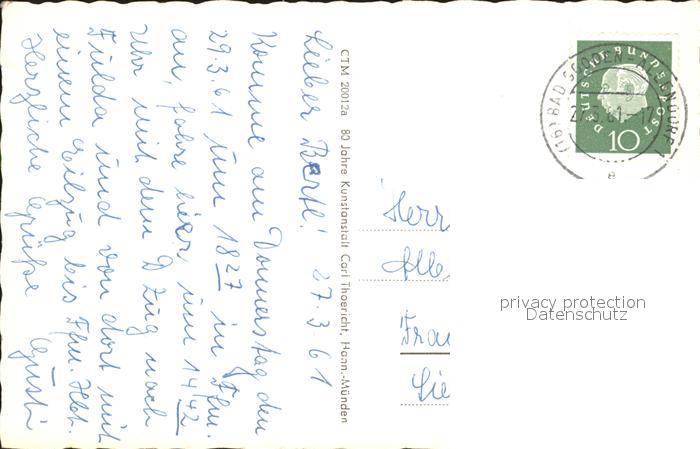 Lieber Bertl! 27.3.61
Komme am Donnerstag den
29.3.61 um 18 27 in Ffm.
an, fahre hier um 14 42
Uhr mit dem D Zug nach
Fulda und von dort mit
einem Eilzug bis Ffm. Hbf.
Herzliche Grüße Gusti
CTM 20012a 80 Jahre Kunstanstalt Carl Thoericht, Hann.-Münden
DEUTSCHE BUNDESPOST
10
(16) BAD SOODEN-ALLENDORF
27.3.61-17
e
Herr
Fran
privacy protection
Datenschutz